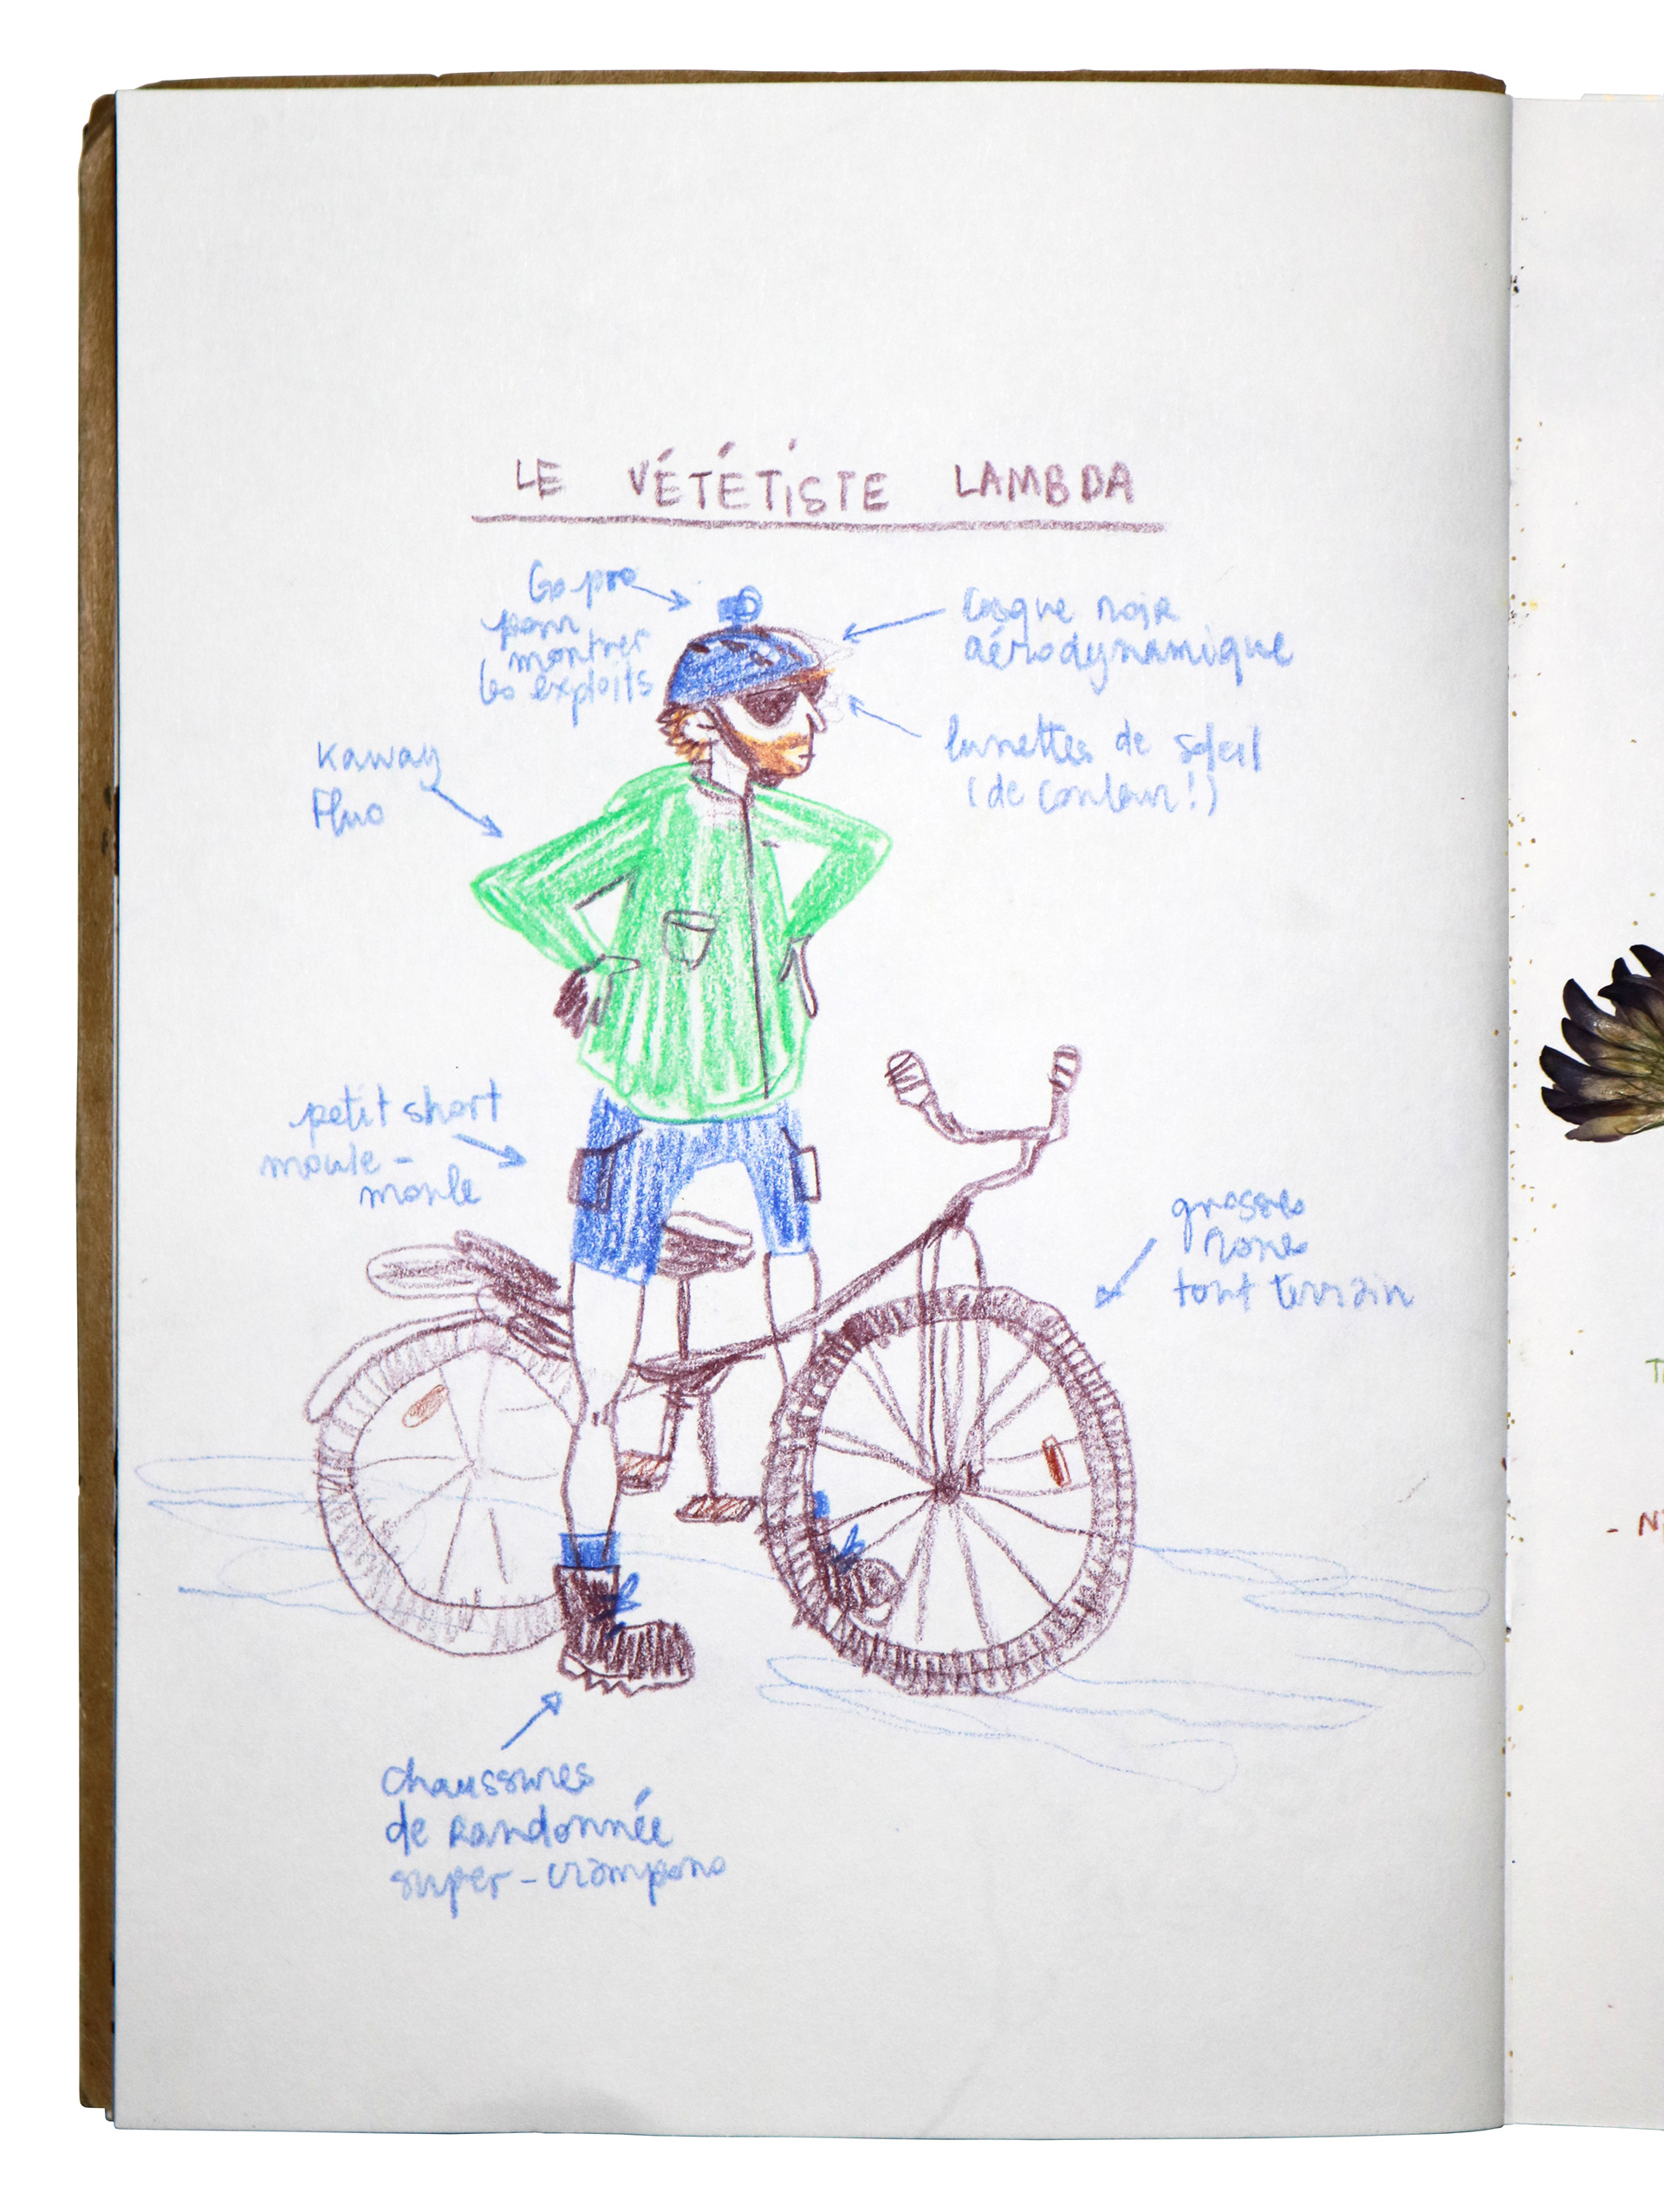 LE VÉTÉTISTE LAMBDA
Go pro
pour
montrer
les exploits
Casque noir
aérodynamique
lunettes de soleil
(de couleur!)
Kaway
Fluo
petit short
moule-
moule
grosses
roues
tout terrain
chaussures
de Randonnée
super-crampons